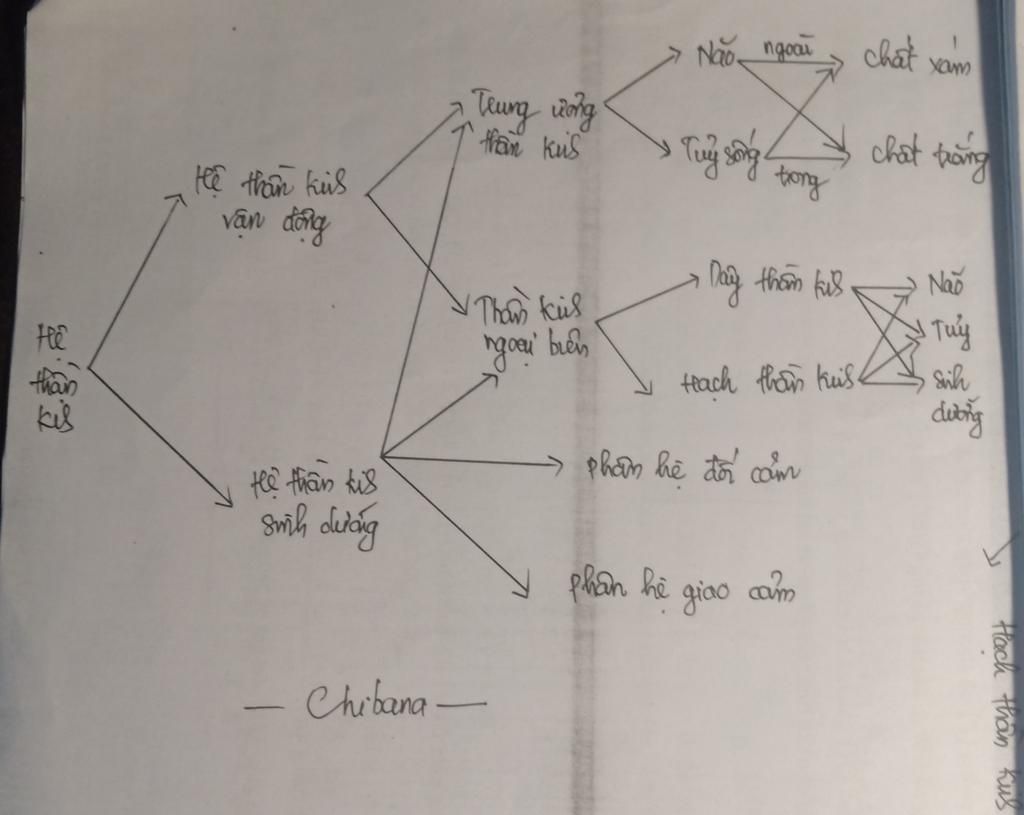 Hệ
thần
kis
Hệ thần kis
vận động
Hệ thần kis
sinh dưỡng
Trung ương
thần kis
Thần kis
ngoại biên
phân hệ đối cảm
phân hệ giao cảm
Não
Tuỷ sống
ngoài
trong
chất xám
chất trắng
Dây thần kis
Hạch thần kis
Não
Tuỷ
sinh
dưỡng
— Chibana —
Hạch thần kis